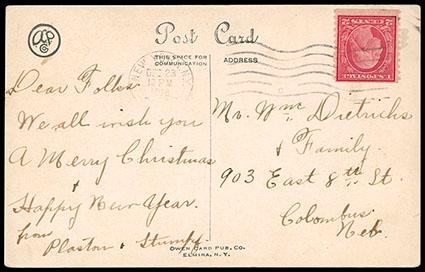 Post Card
THIS SPACE FOR
COMMUNICATION
ADDRESS
DEC 23
12 PM
2 CENTS 2
U.S. POSTAGE
Dear Folks
We all wish you
A Merry Christmas
&
Happy New Year.
from
Plaston & Stumpf.
Mr. Wm. Dietrichs
& Family.
903 East 8th St.
Columbus.
Neb.
OWEN CARD PUB. CO.
ELMIRA, N.Y.